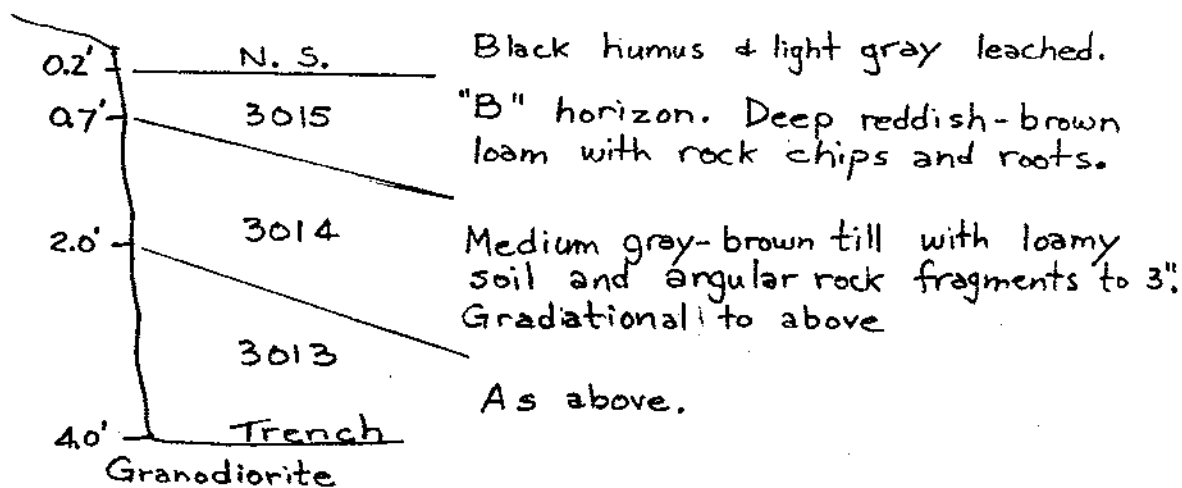 0.2' N. S. Black humus & light gray leached.
0.7' 3015 "B" horizon. Deep reddish-brown
loam with rock chips and roots.
2.0' 3014 Medium gray-brown till with loamy
soil and angular rock fragments to 3".
Gradiational to above
3013
As above.
4.0' Trench
Granodiorite